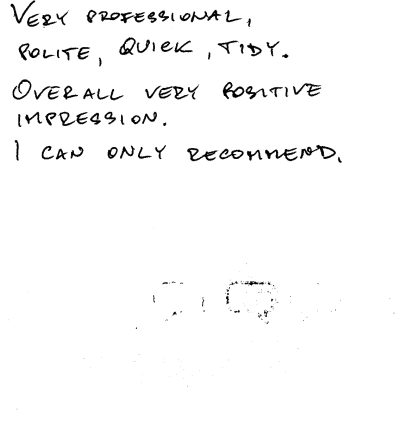 VERY PROFESSIONAL,
POLITE, QUICK, TIDY.
OVERALL VERY POSITIVE
IMPRESSION.
I CAN ONLY RECOMMEND.